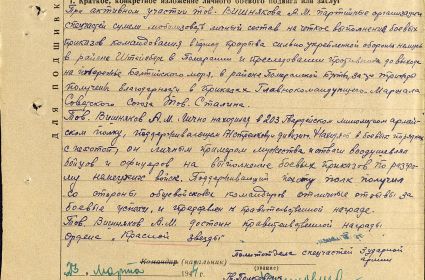 I. Краткое, конкретное изложение личного боевого подвига или заслуг
При активном участии тов. Вишнякова А.М. партийные организации
спецчастей сумели мобилизовать личный состав на четкое выполнение боевых
приказов командования в период прорыва сильно укрепленной обороны немцев
в районе Штаргард в Померании и преследовании противника до выхода
на побережье Балтийского моря, в районе Померанской бухты, за что трижды
получили благодарности в приказах Главнокомандующего Маршала
Советского Союза Тов. Сталина.
Тов. Вишняков А.М. лично находясь в 203 Гвардейском минометном
полку, поддерживающем дивизию. Находясь в боевых порядках
с пехотой он личным примером мужества и отваги воодушевлял
бойцов и офицеров на выполнение боевых приказов по разгро-
му немецких войск. Поддерживающий пехоту полк получил
со стороны общевойсковых командиров отличные отзывы за
боевые успехи, и представлен к правительственной награде.
Тов. Вишняков А.М. достоин правительственной награды
Ордена „Красной звезды"
Командир (начальник) Политотдела спецчастей 3 ударной
армии
марта 194 г.
(подпись)
для подши